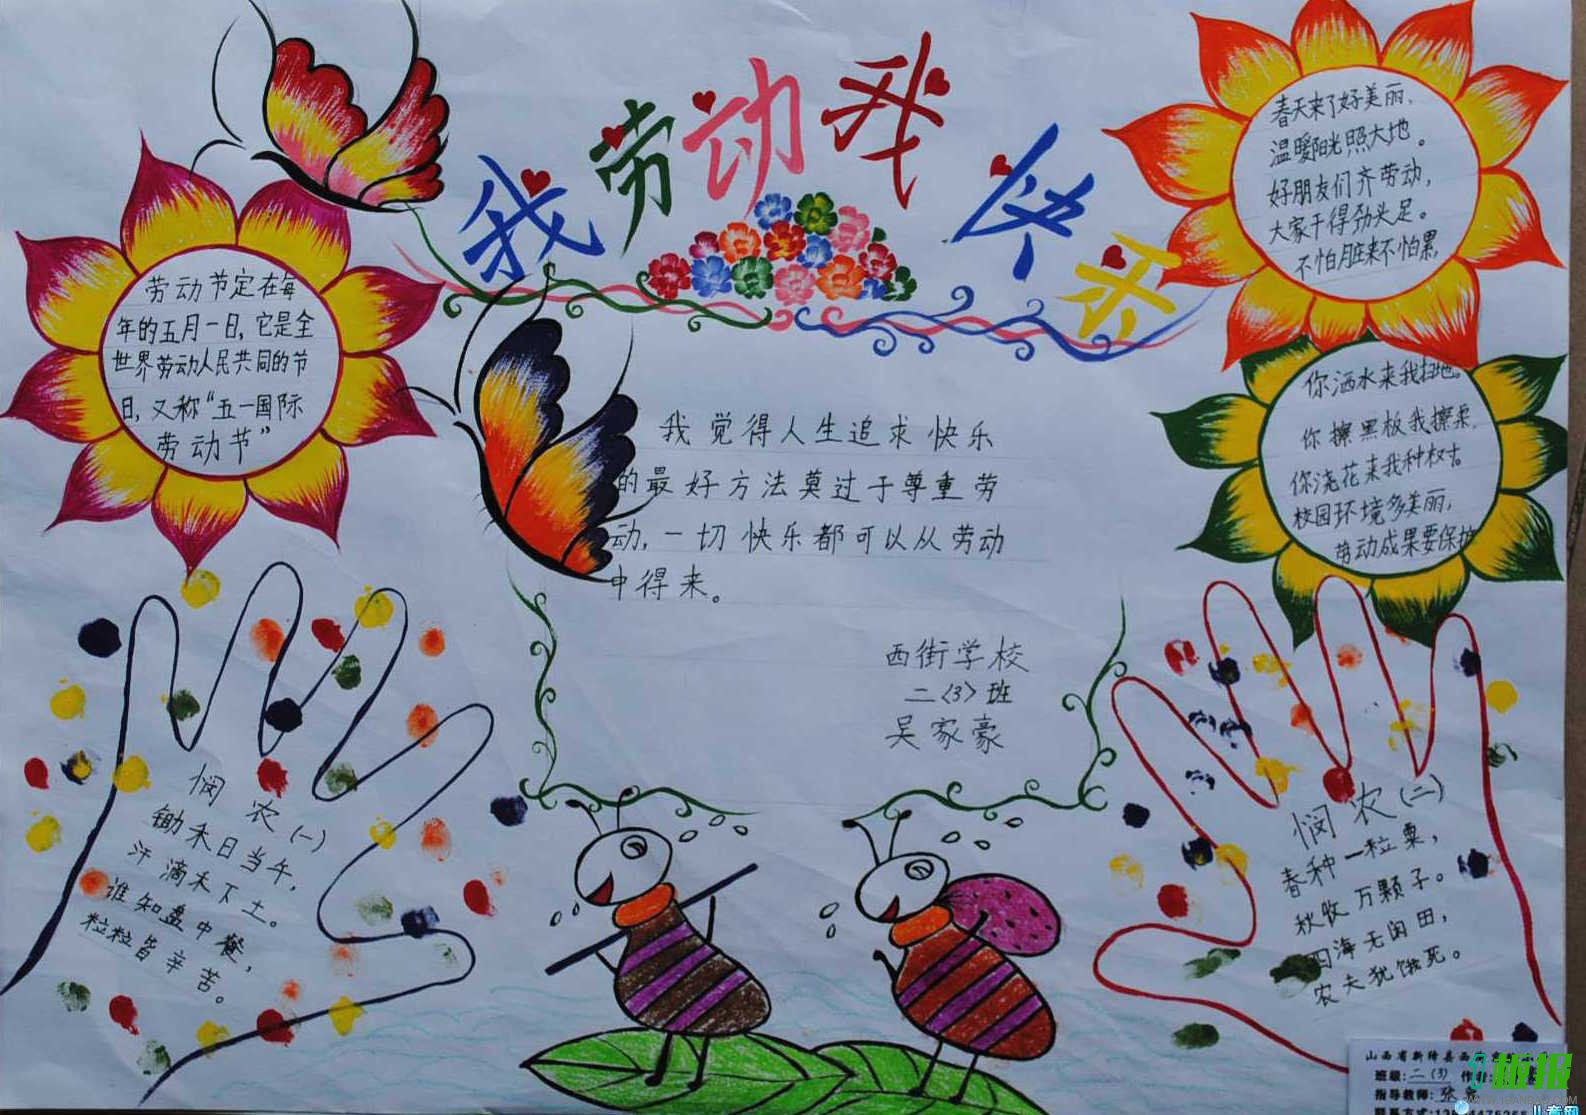 我劳动我快乐
劳动节定在每
年的五月一日,它是全
世界劳动人民共同的节
日,又称“五一国际
劳动节”
春天来了好美丽,
温暖阳光照大地。
好朋友们齐劳动,
大家干得劲头足。
不怕脏来不怕累,
你洒水来我扫地。
你擦黑板我擦桌,
你浇花来我种树。
校园环境多美丽,
劳动成果要保护
我觉得人生追求快乐
的最好方法莫过于尊重劳
动,一切快乐都可以从劳动
中得来。
西街学校
二〈3〉班
吴家豪
悯农(一)
锄禾日当午,
汗滴禾下土。
谁知盘中餐,
粒粒皆辛苦。
悯农(二)
春种一粒粟,
秋收万颗子。
四海无闲田,
农夫犹饿死。
山西省新绛县西街
班级:二(3)
指导教师:张
板报
儿童网